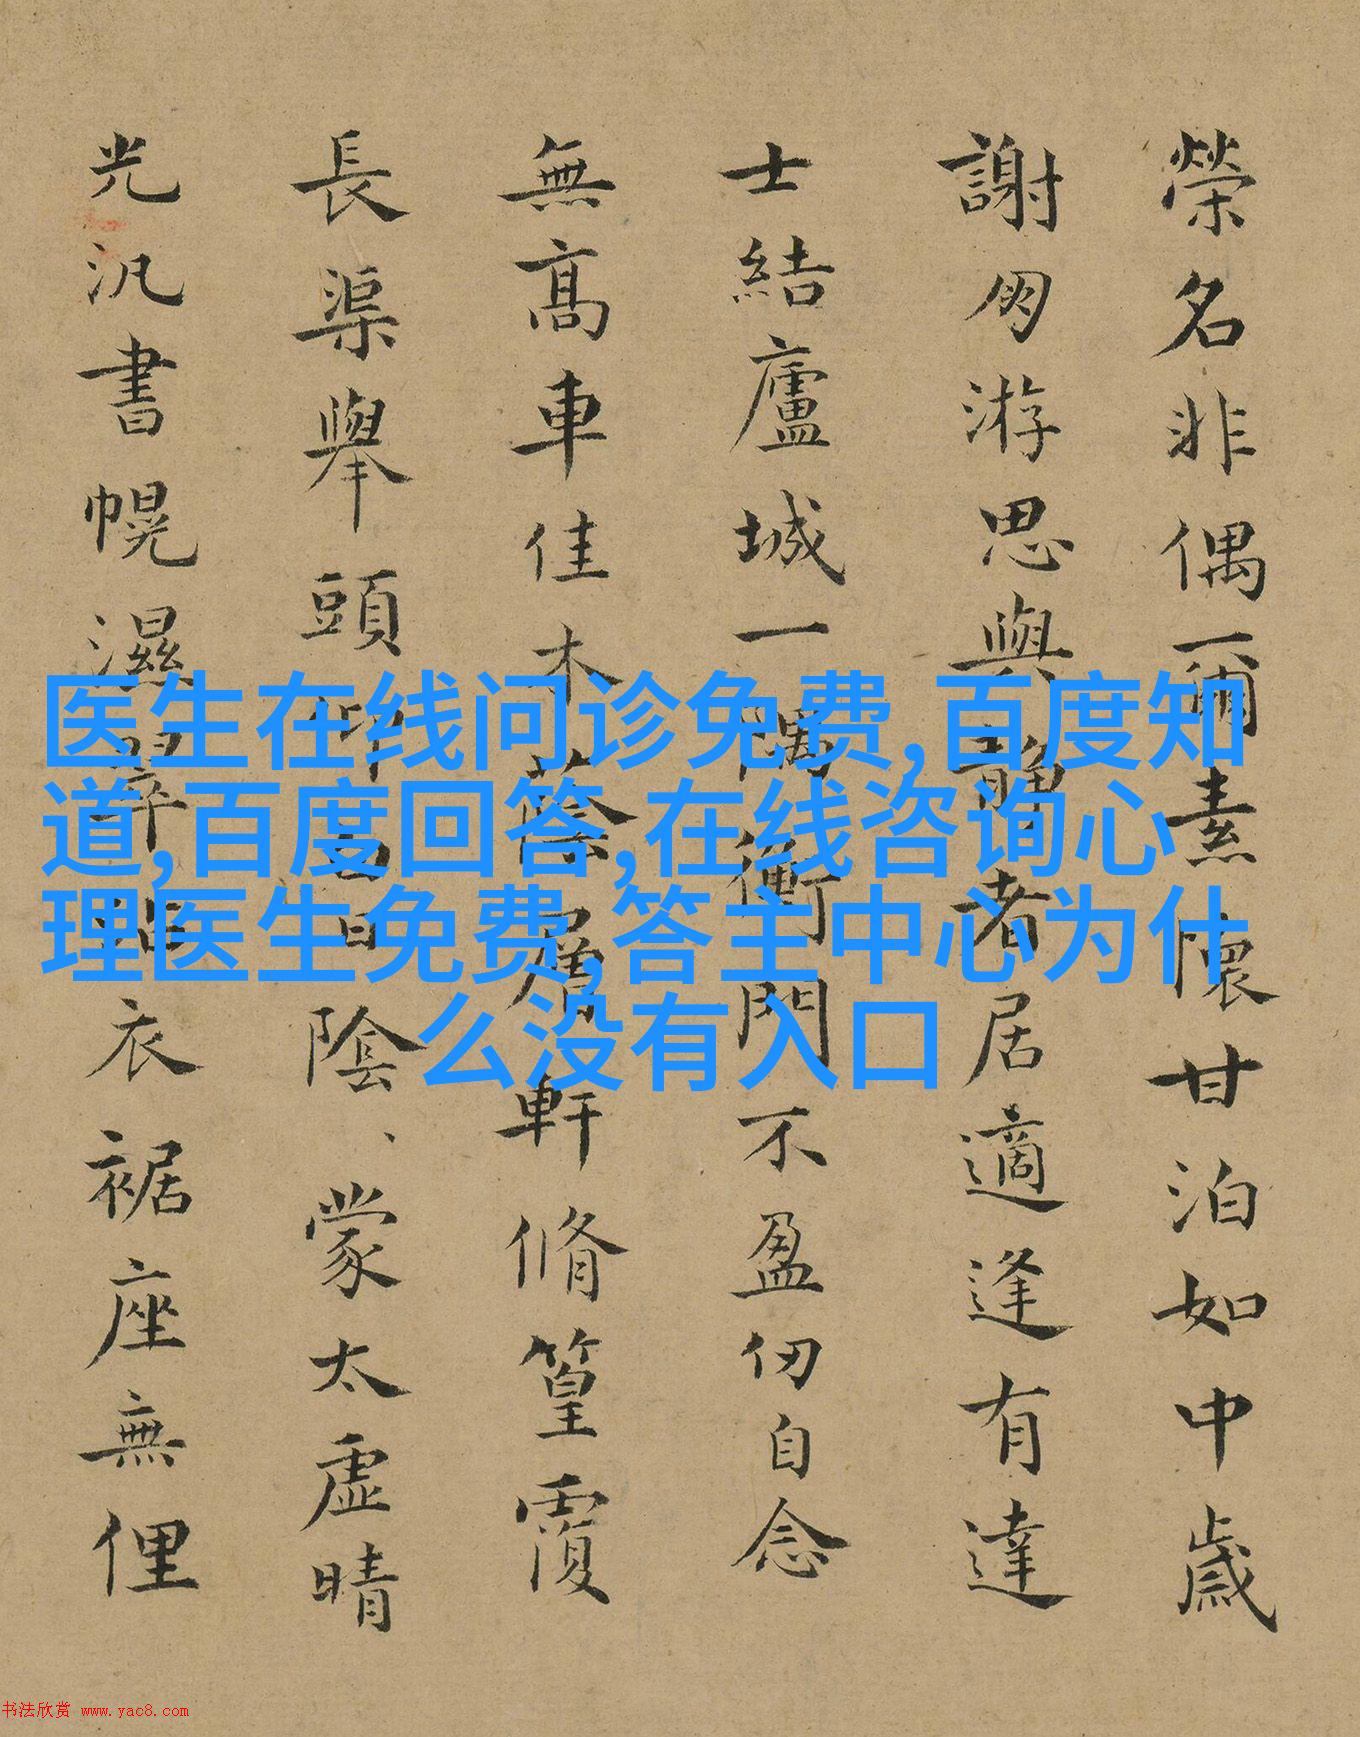 榮名非偶爾素懷甘泊如中歲
謝肉游思與靜者居適逢有達
士結廬城一隅衡門不盈仞自念
無高車佳木蔭層軒脩篁覆
長渠舉頭仰白日陰蒙太虛晴
光汎書幌濕翠沾衣裾座無俚
医生在线问诊免费,百度知
道,百度回答,在线咨询心
理医生免费,答主中心为什
么没有入口
书法欣赏 www.yac8.com